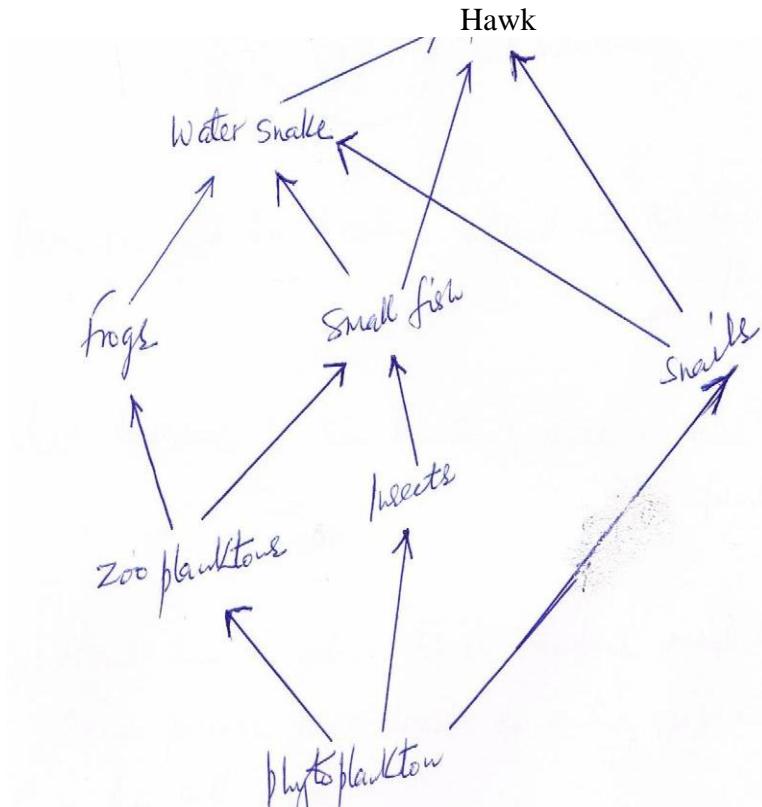 Hawk
Water Snake
Frogs
Small fish
Snails
Insects
Zooplanktons
phytoplankton